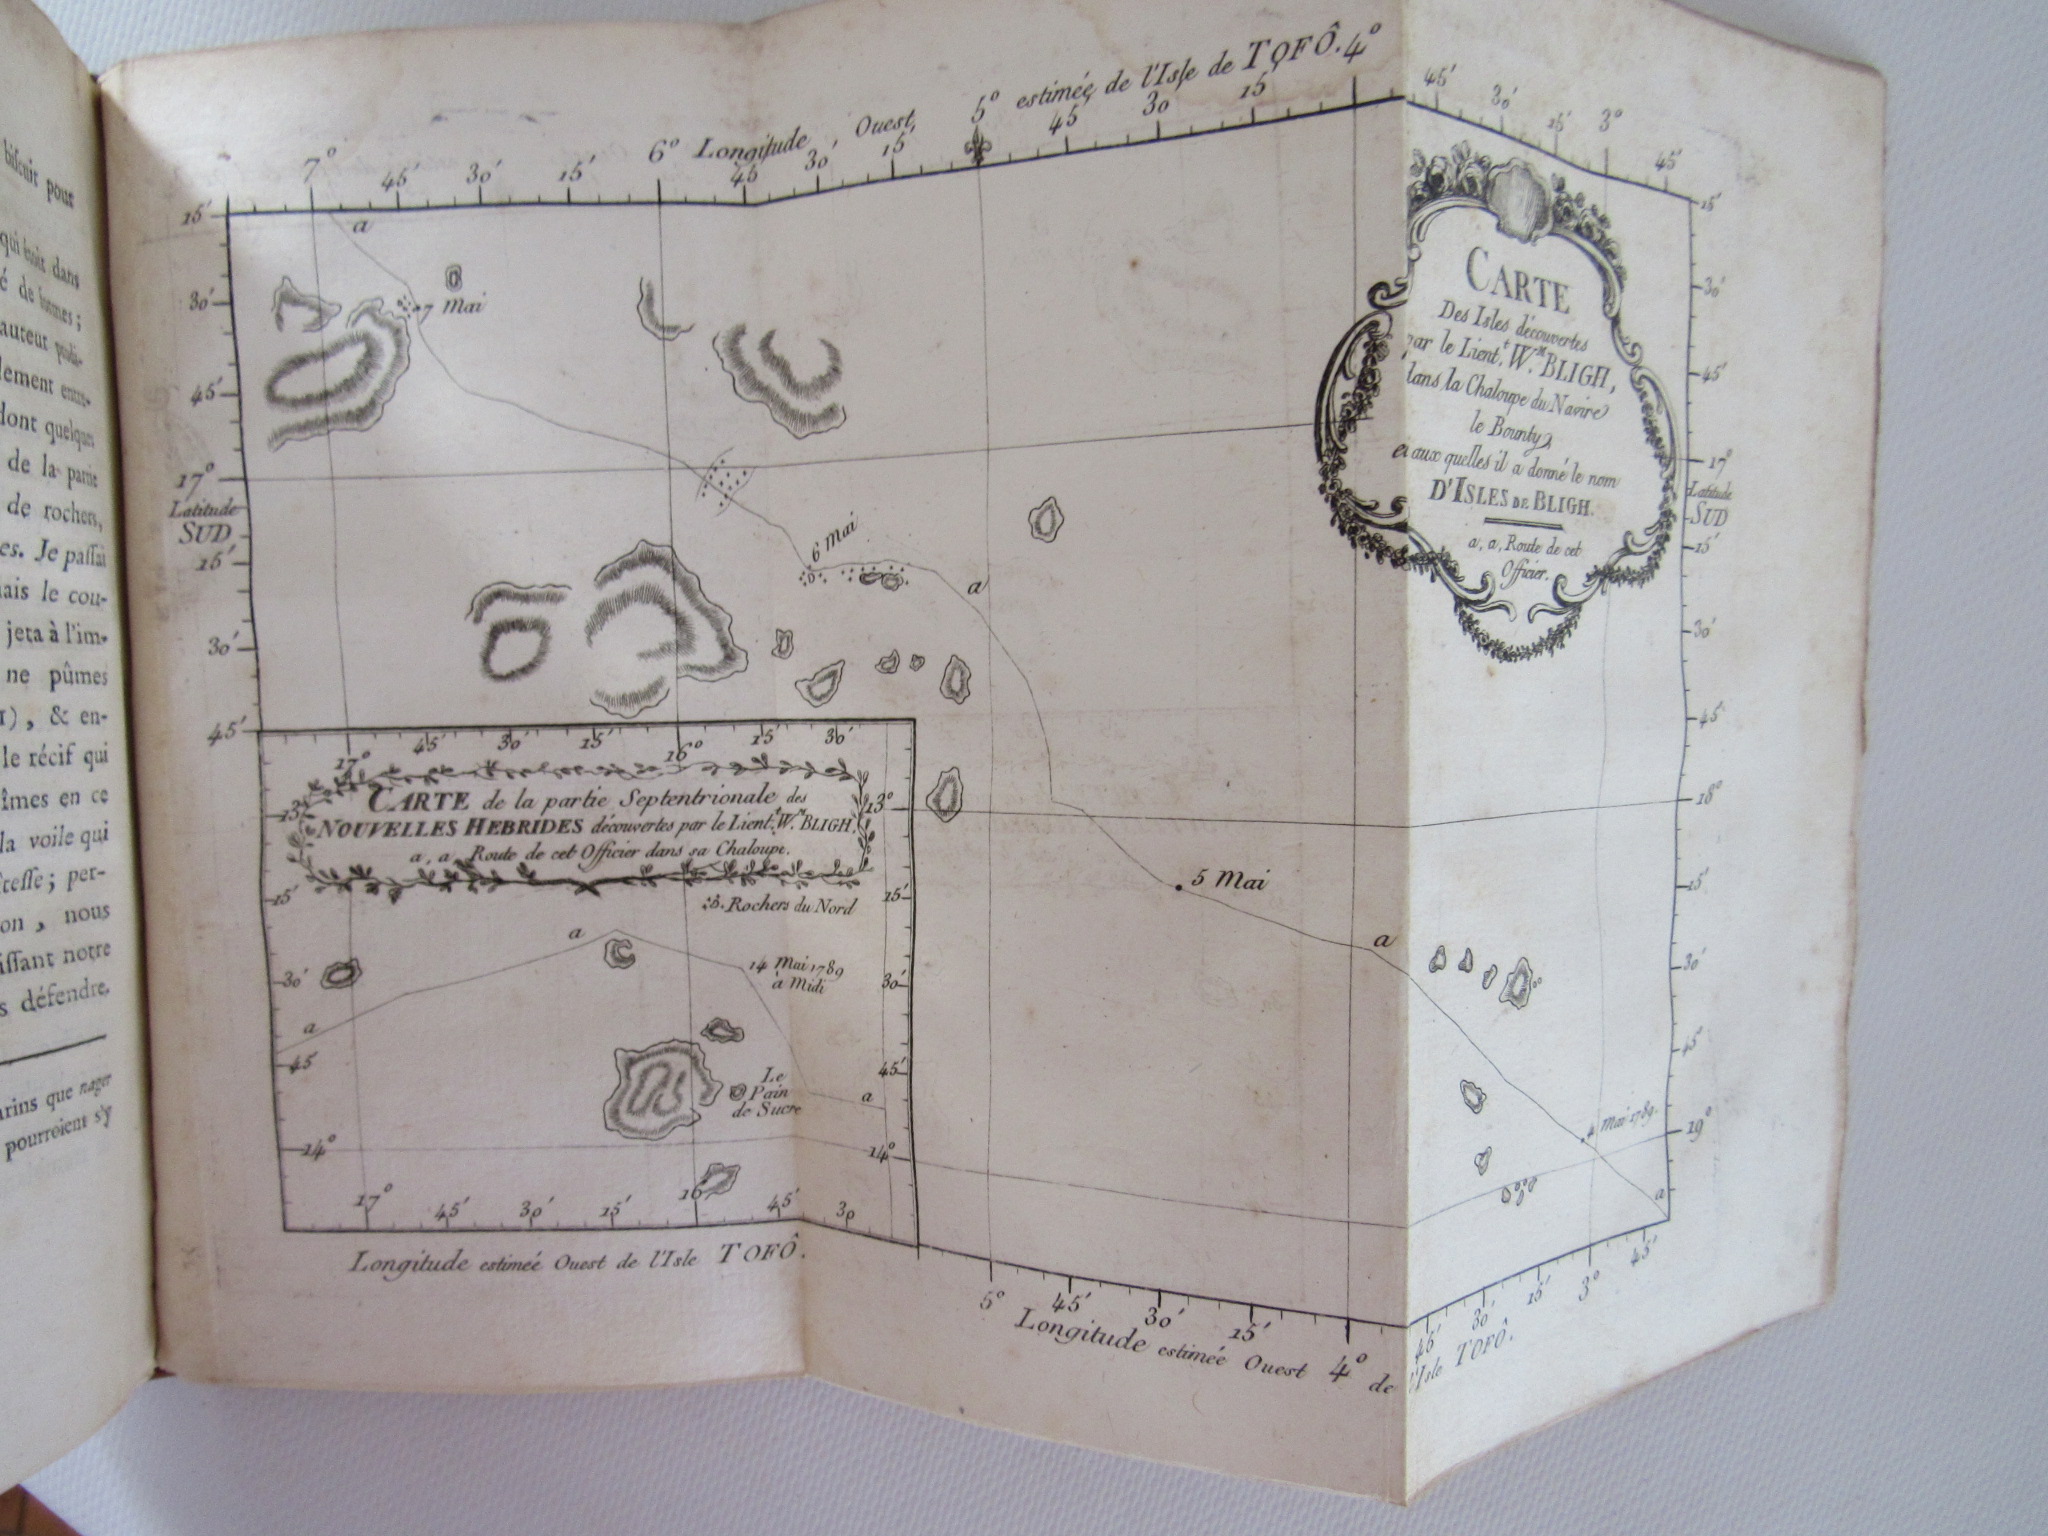 biscuit pour
qui étoit dans
é de hommes;
auteur
lement
dont quelques
de la partie
de rochers,
es. Je passai
ais le cou-
jeta à l'im-
ne pûmes
1), & en-
le récif qui
îmes en ce
la voile qui
îtesse; per-
on, nous
issant notre
s défendre.
arins que nager
pourroient s'y
7° 45' 30' 15' 6° 45' 30' 15' 5° 45' 30 15' 4° 45' 30' 15' 3° 45'
Longitude Ouest estimée de l'Isle de TOFÔ.
15'
30'
45'
17°
Latitude
SUD
15'
30'
45'
a
7 Mai
6 Mai
a
5 Mai
a
4 Mai 1789.
a
CARTE
Des Isles découvertes
par le Lieut.t W.m BLIGH,
dans la Chaloupe du Navire
le Bounty,
et aux quelles il a donné le nom
D'ISLES DE BLIGH.
a, a, Route de cet
Officier.
15'
30'
45'
17°
Latitude
SUD
15'
30'
45'
18°
15'
30'
45'
19°
17° 45' 30' 15' 16° 15' 30'
CARTE de la partie Septentrionale des
NOUVELLES HEBRIDES découvertes par le Lieut.t W.m BLIGH.
a, a, Route de cet Officier dans sa Chaloupe.
13°
15'
30'
45'
14°
13°
15'
30'
45'
14°
Rochers du Nord
a
14 Mai 1789
à Midi
a
Le
Pain
de Sucre
a
17° 45' 30' 15' 16° 45' 30
Longitude estimée Ouest de l'Isle TOFÔ.
5° 45' 30' 15' 4° 45' 30' 15' 3° 45'
Longitude estimée Ouest de l'Isle TOFÔ.